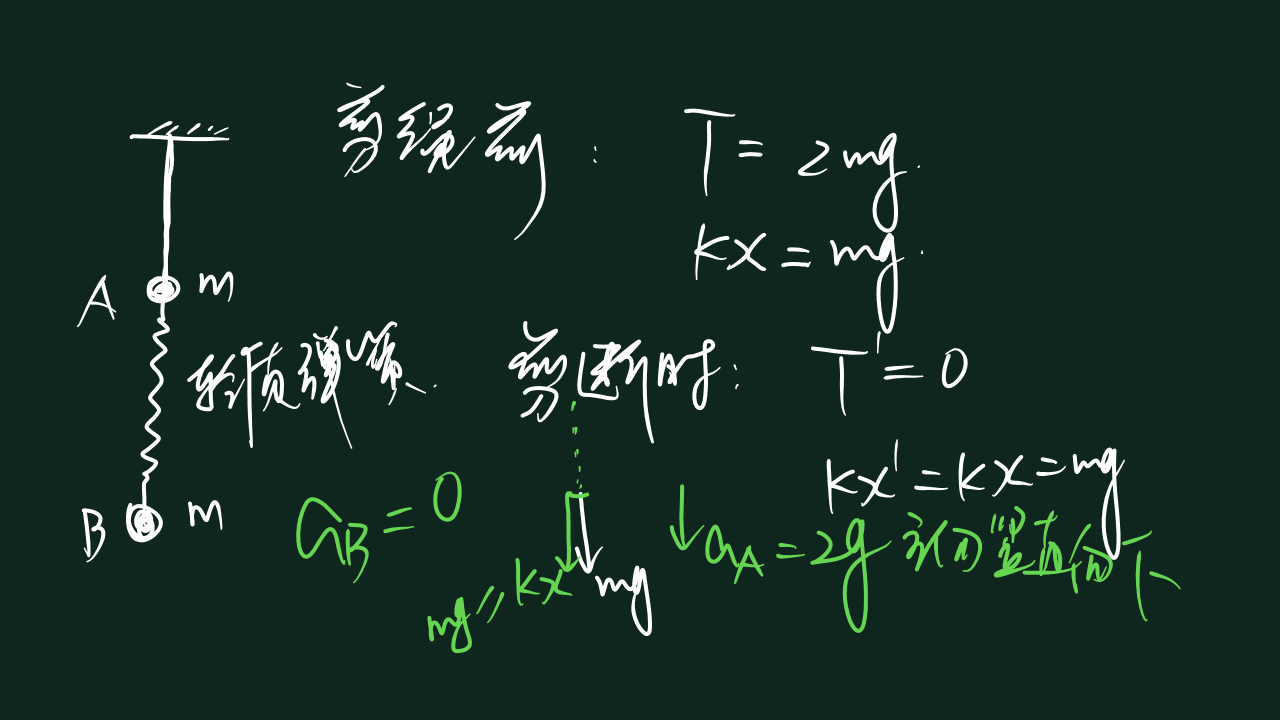 剪绳前: T = 2mg.
kx = mg.
A m
轻质弹簧.
剪断时: T' = 0
kx' = kx = mg
B m
a_B = 0
mg = kx
mg
a_A = 2g 方向竖直向下